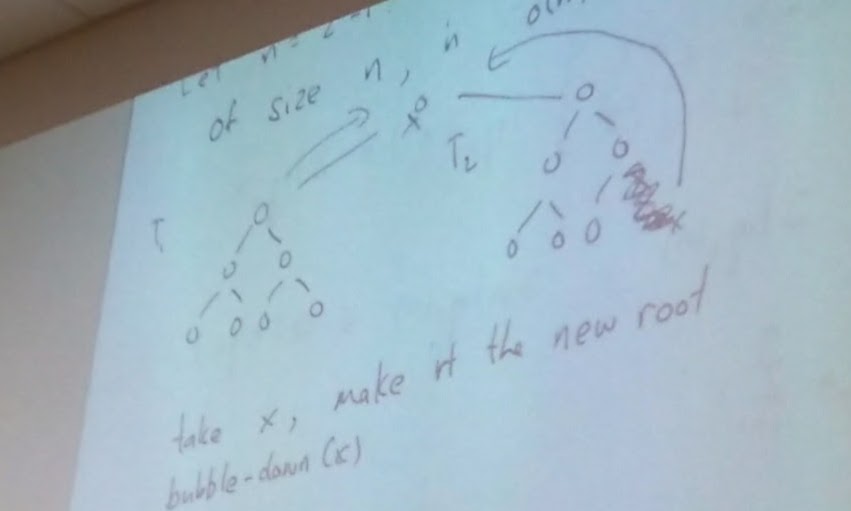 of size n, n
x
T₂
T₁
take x, make it the new root
bubble-down (x)